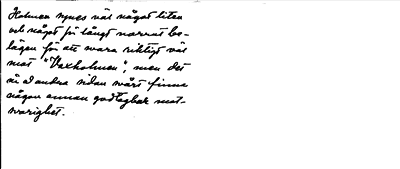 Holmen synes väl något liten
och något för långt norrut be-
lägen för att vara riktigt väl
mot "Vaxholmen", men det
är å andra sidan svårt finna
någon annan godtagbar mot-
svarighet.